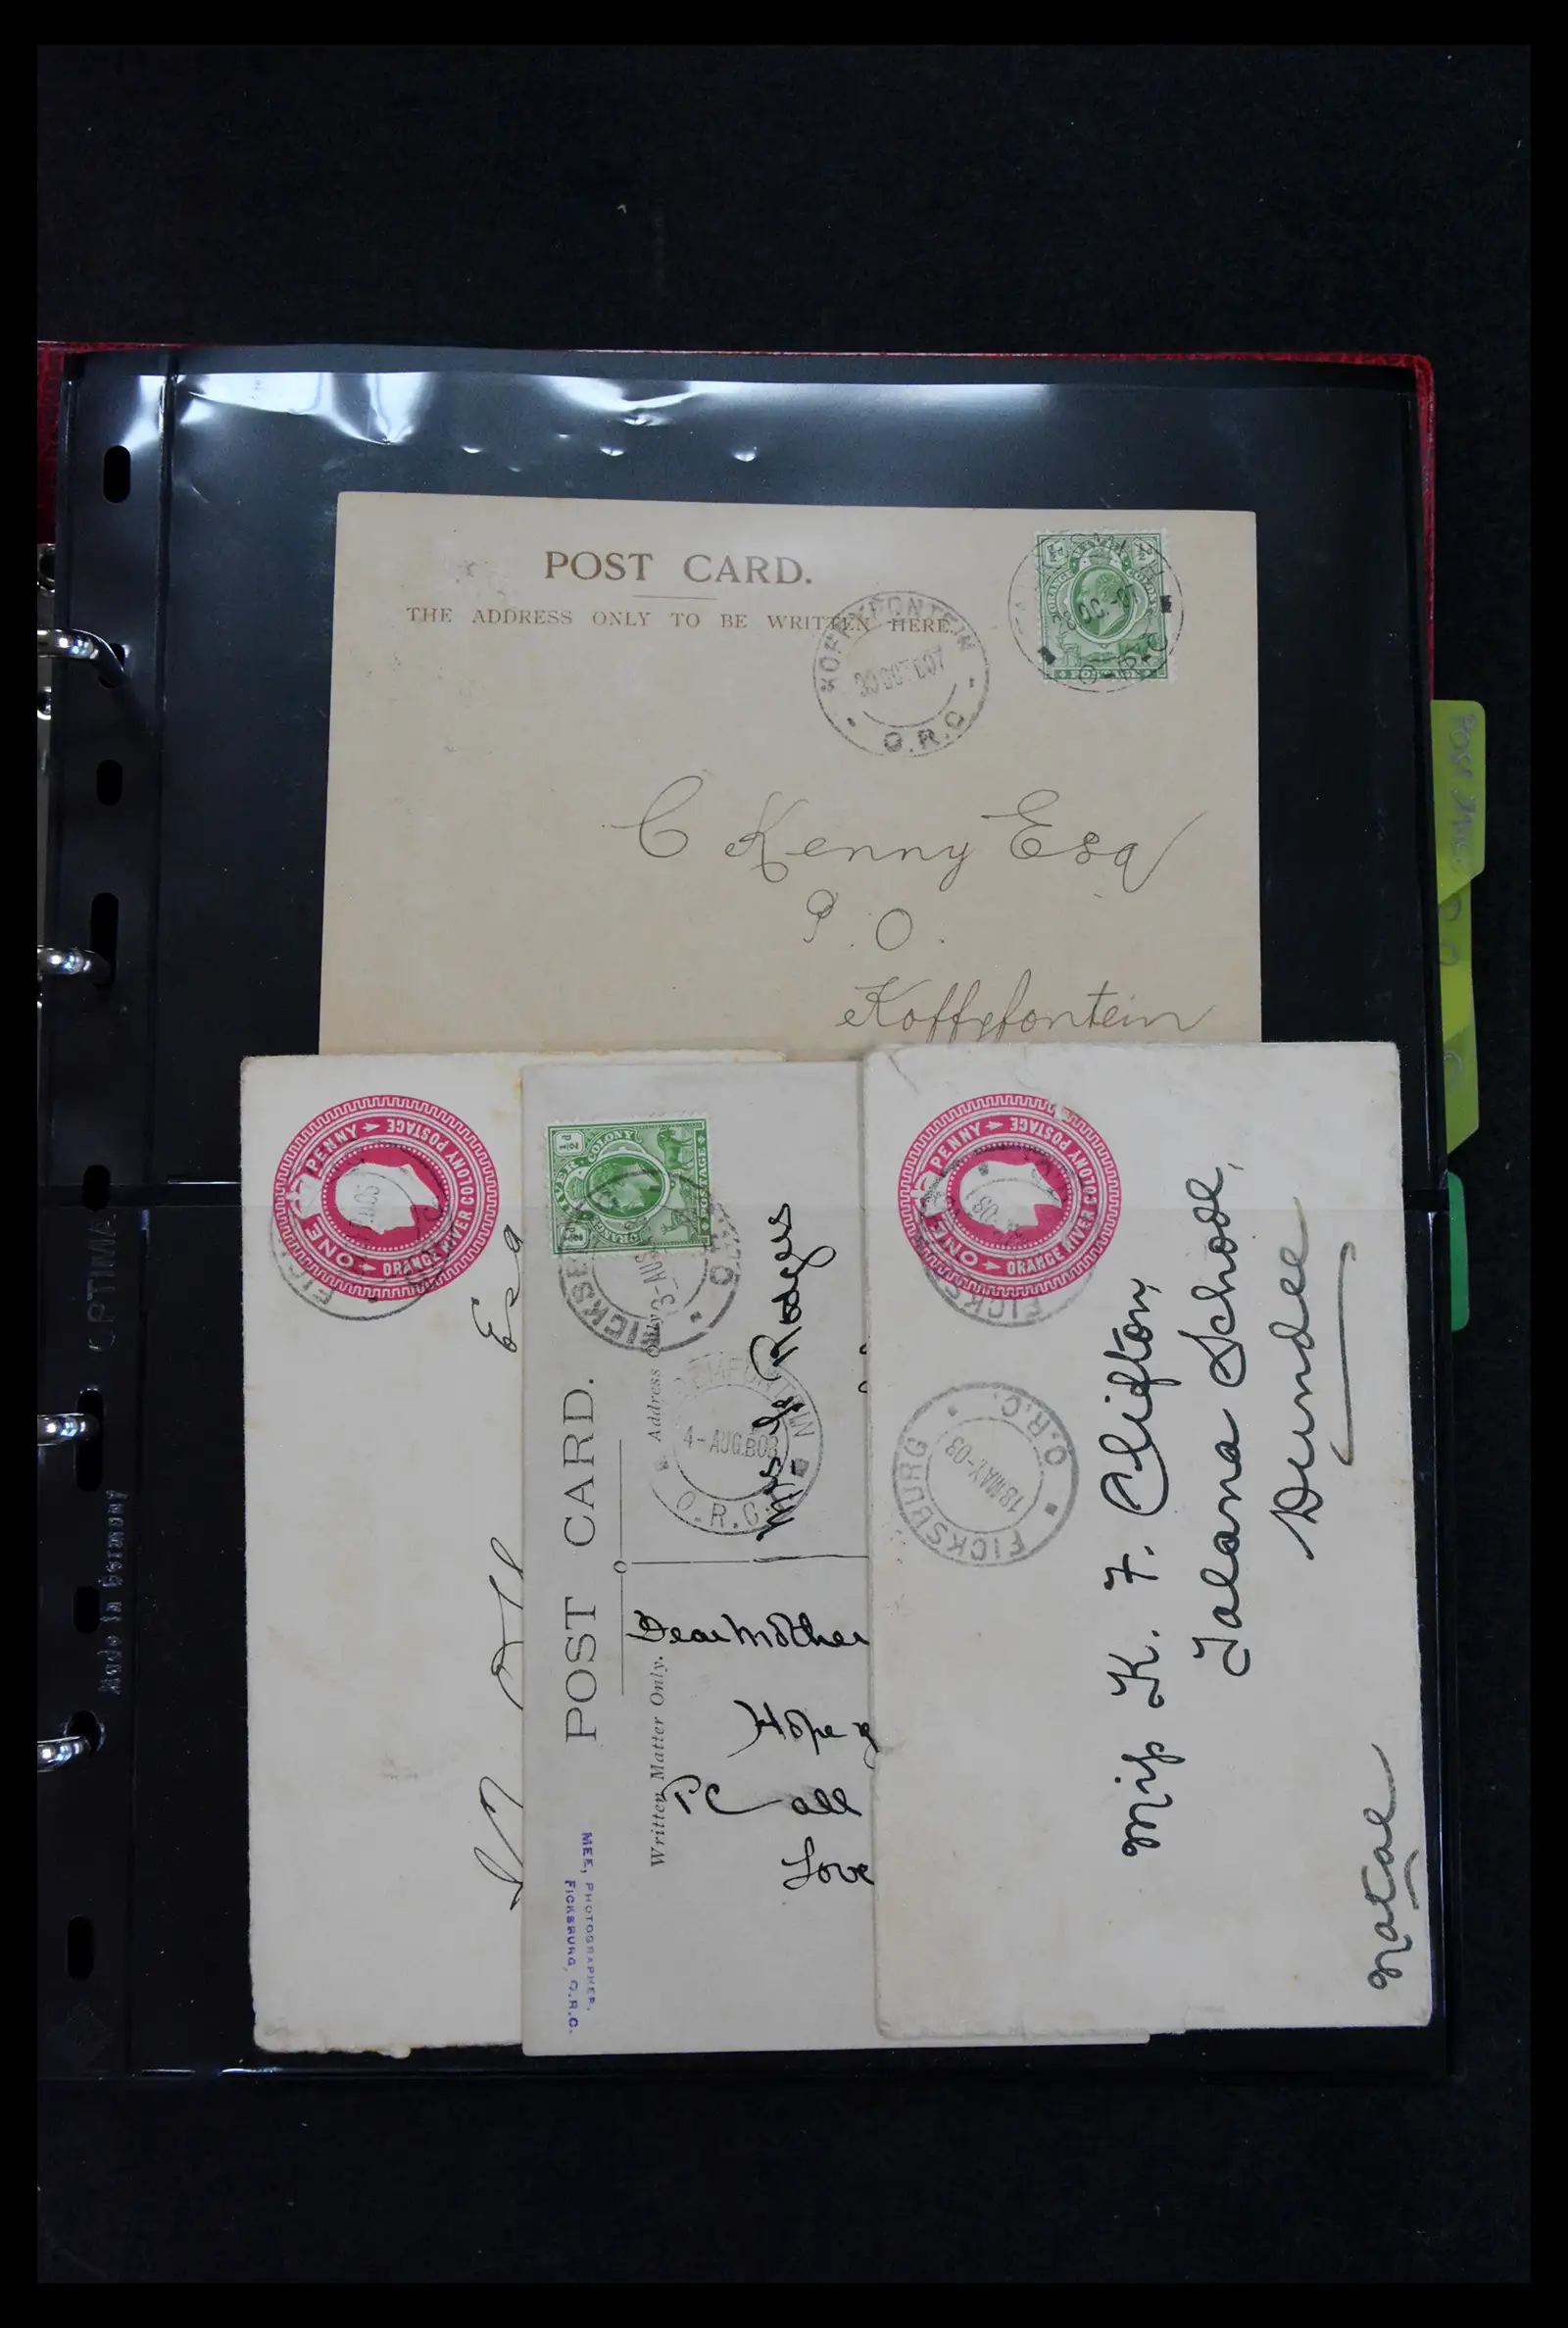 POST CARD.
THE ADDRESS ONLY TO BE WRITTEN HERE.
KOFFYFONTEIN
30 OCT 07
O.R.C
O.R.C
C Kenny Esq
P.O.
Koffyfontein
ONE PENNY
ORANGE RIVER COLONY POSTAGE
Esq
POST CARD.
Address Only
Written Matter Only.
COLONY
POSTAGE
FICKSBURG
3-AUG
4-AUG.B.08
O.R.C.
Mrs Rodgers
Dear Mother
Hope
PC all
Love
MEE, PHOTOGRAPHER,
FICKSBURG, O.R.C.
ONE PENNY
ORANGE RIVER COLONY POSTAGE
FICKSBURG
18 MAY-03
O.R.C.
Miss K. F. Clifton,
Talana School,
Dundee
Natal
OPTIMA
Made in Germany